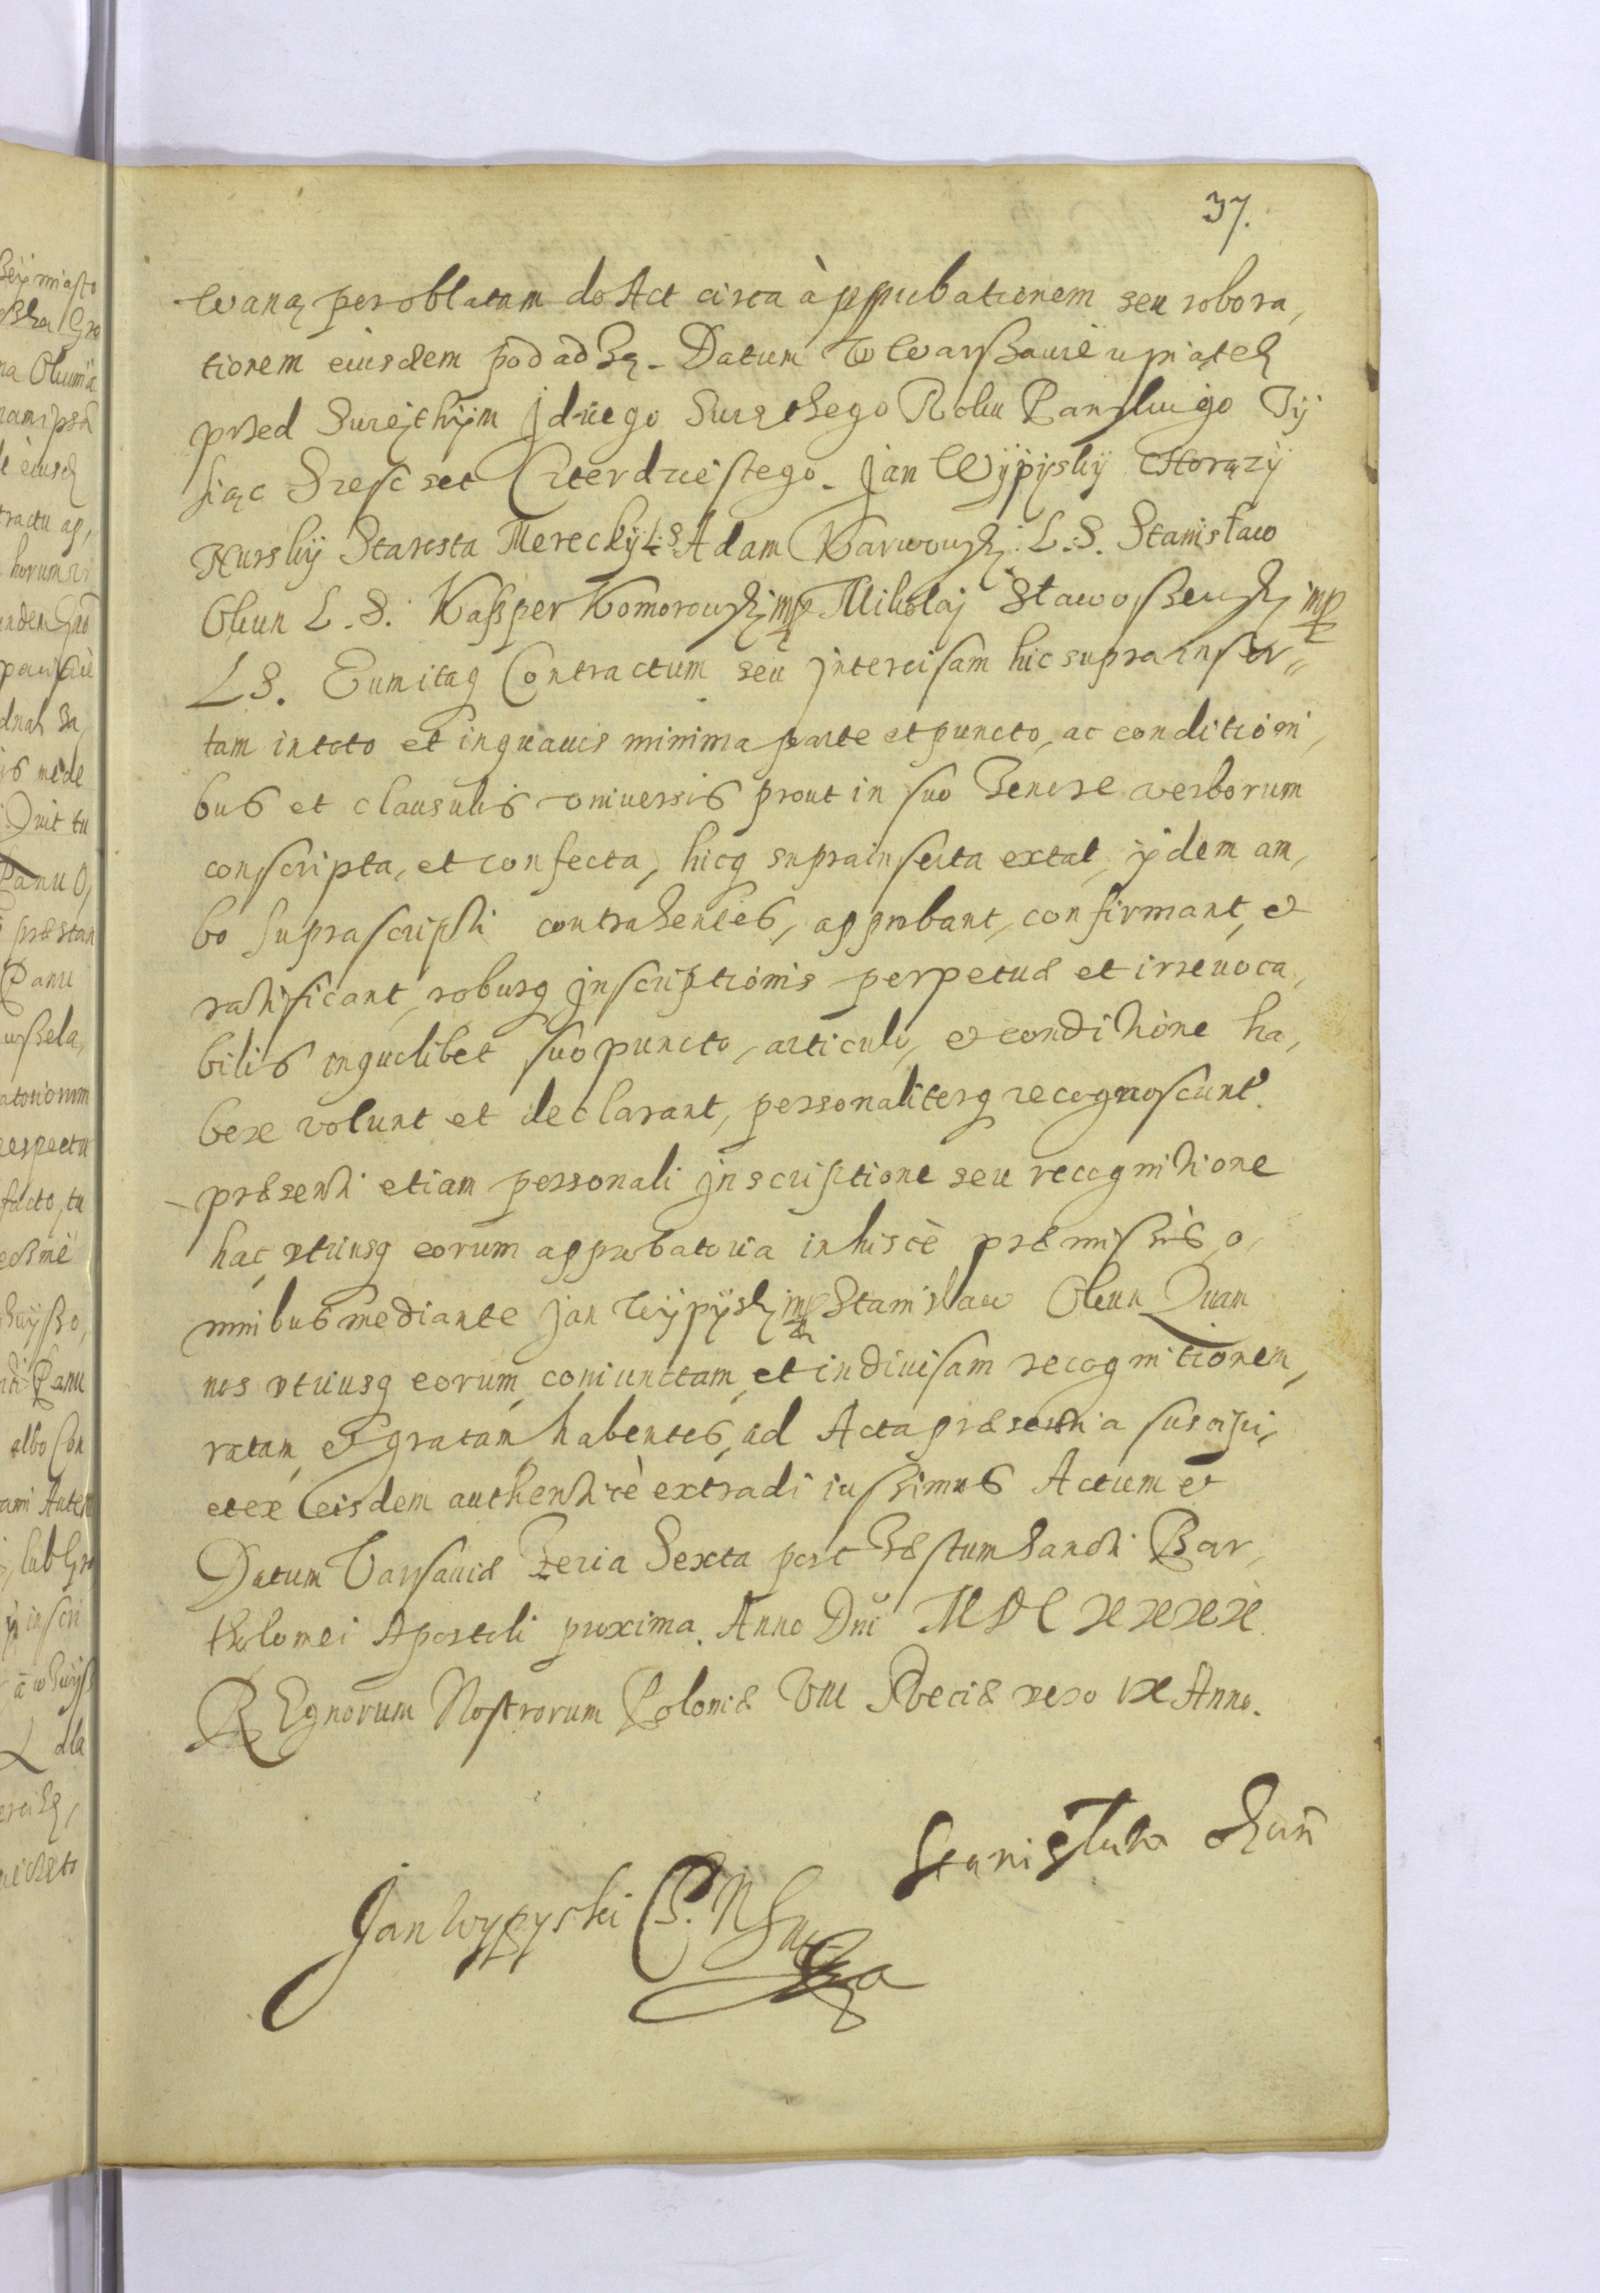 37.
waną per oblatam do Act circa àpprobationem seu robora,
tionem eiusdem podadzą. Datum w Warszawie w piątek
przed Swiętÿm Jdziego Swiętego Roku Panskiego Tÿ
siąc Szesc set Czterdziestego. Jan Wÿpÿskÿ Chorązÿ
Nurskÿ Starosta Mereckÿ L.S. Adam Karwowskj. L.S. Stanisław
Okun L.S. Kasper Komorowskj mp Mikołaj Stawoszewskj mp
L S. Eumitaq Contractum seu jntercisam hic supra inser,,
tam in toto et in quauis minima parte et puncto, ac conditioni,
bus et clausulis vniuersis prout in suo tenore verborum
conscripta, et confecta, hicq suprainserta extat, ijdem am,
bo suprascripti contrahentes, approbant, confirmant, et
ratificant, roburq jnscriptionis perpetuæ et irreuoca,
bilis in quolibet suo puncto, articulo, et conditione ha,
bere volunt et declarant, personaliterq recognoscunt.
præsenti etiam personali jnscriptione seu recognitione
hac vtriusq eorum approbatoria in hiscè præmissis o,
mnibus mediante Jan Wÿpÿskj mp Stanisław Okun Quam
nos vtriusq eorum coniunctam, et indiuisam recognitionem,
ratam, et gratam habentes, ad Acta præsentia suscipi,
et ex eisdem authenticè extradi iussimus Actum et
Datum Varsauiæ Feria Sexta post Festum Sancti Bar,
tholomei Apostoli proxima. Anno Dni MDCXXXX
REgnorum Nostrorum Poloniæ VIII Sueciæ vero IX Anno.
Stanisław Okuń
Jan Wypyski C. N S